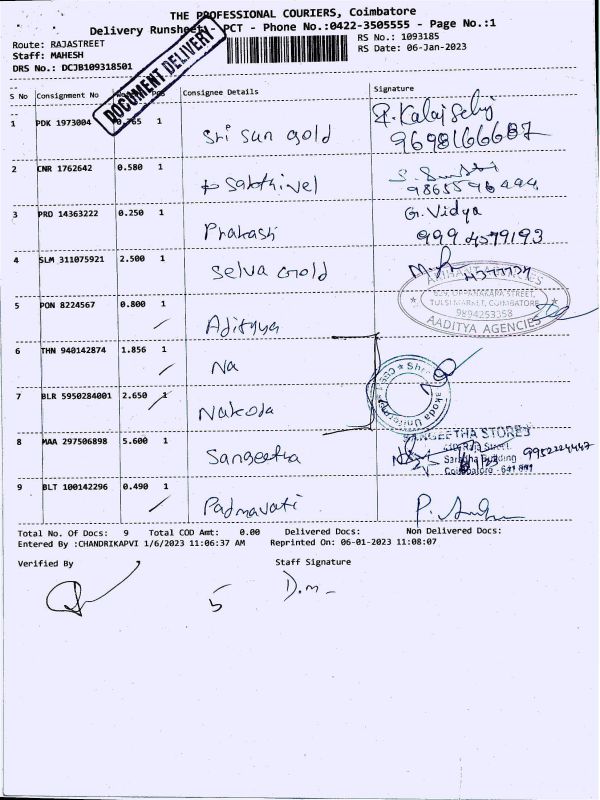 THE PROFESSIONAL COURIERS, Coimbatore
Delivery Runsheet - PCT - Phone No.:0422-3505555 - Page No.:1
Route: RAJASTREET
RS No.: 1093185
Staff: MAHESH
RS Date: 06-Jan-2023
DRS No.: DCJB109318501
DOCUMENT DELIVERY
S No Consignment No Pcs Consignee Details Signature
1 PDK 1973004 0.765 1 Sri Sun Gold R. Kalaiselvi
9698166687
2 CNR 1762642 0.580 1 Sakthivel S.
3 PRD 14363222 0.250 1 Prakash G. Vidya
4 SLM 311075921 2.500 1 Selva Gold
TULSI MARKET, COIMBATORE
9894253358
AADITYA AGENCIES
5 PON 8224567 0.800 1 Adithya
6 THN 940142874 1.856 1 Na
7 BLR 5950284001 2.650 1 Nakoda
8 MAA 297506898 5.600 1 Sangeetha
SANGEETHA STORES
Building
Coimbatore - 641 001
9952224447
9 BLT 100142296 0.490 1 Padmavati P.
Total No. Of Docs: 9 Total COD Amt: 0.00 Delivered Docs: Non Delivered Docs:
Entered By :CHANDRIKAPVI 1/6/2023 11:06:37 AM Reprinted On: 06-01-2023 11:08:07
Verified By Staff Signature
5 D.m